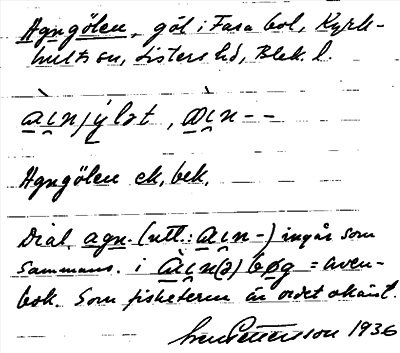 Agngölen, göl i Farabol, Kyrk-
hults sn, Listers hd, Blek. l.
àɩnjýlət, àɩn--
Agngölen ek, bek.
Dial. agn- (uttl.: aɩn-) ingår som
sammans. i àɩn(ə)bøg = aven-
bok. Som fisketerm är ordet okänt.
Pettersson 1936